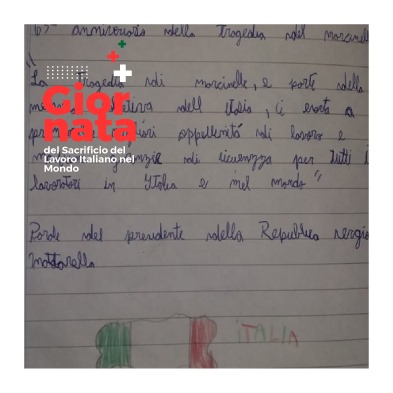 65° anniversario della Tragedia del
"La Tragedia di marcinelle, e parte della
dell italia, ci esorta a
di lavoro e
di sicurezza per tutti i
lavoratori in Italia e nel mondo"
Parole del presidente della Republica sergio
mattarella
ITALIA
Gior
nata
del Sacrificio del
Lavoro Italiano nel
Mondo